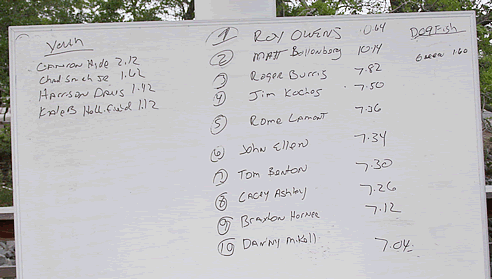 Youth
Cameron Hyde 2.12
Chad Smith Jr 1.62
Harrison Davis 1.42
Kaleb Hollifield 1.12
1 Roy Owens .64
2 Matt Bollenberg 10.14
3 Roger Burris 7.82
4 Jim Koches 7.50
5 Rome Lamont
6 John Ellen 7.34
7 Tom Benton 7.30
8 Lacey Ashley 7.26
9 Braxton Hornee 7.12
10 Danny Mikell 7.04
Dogfish
Green 1.60